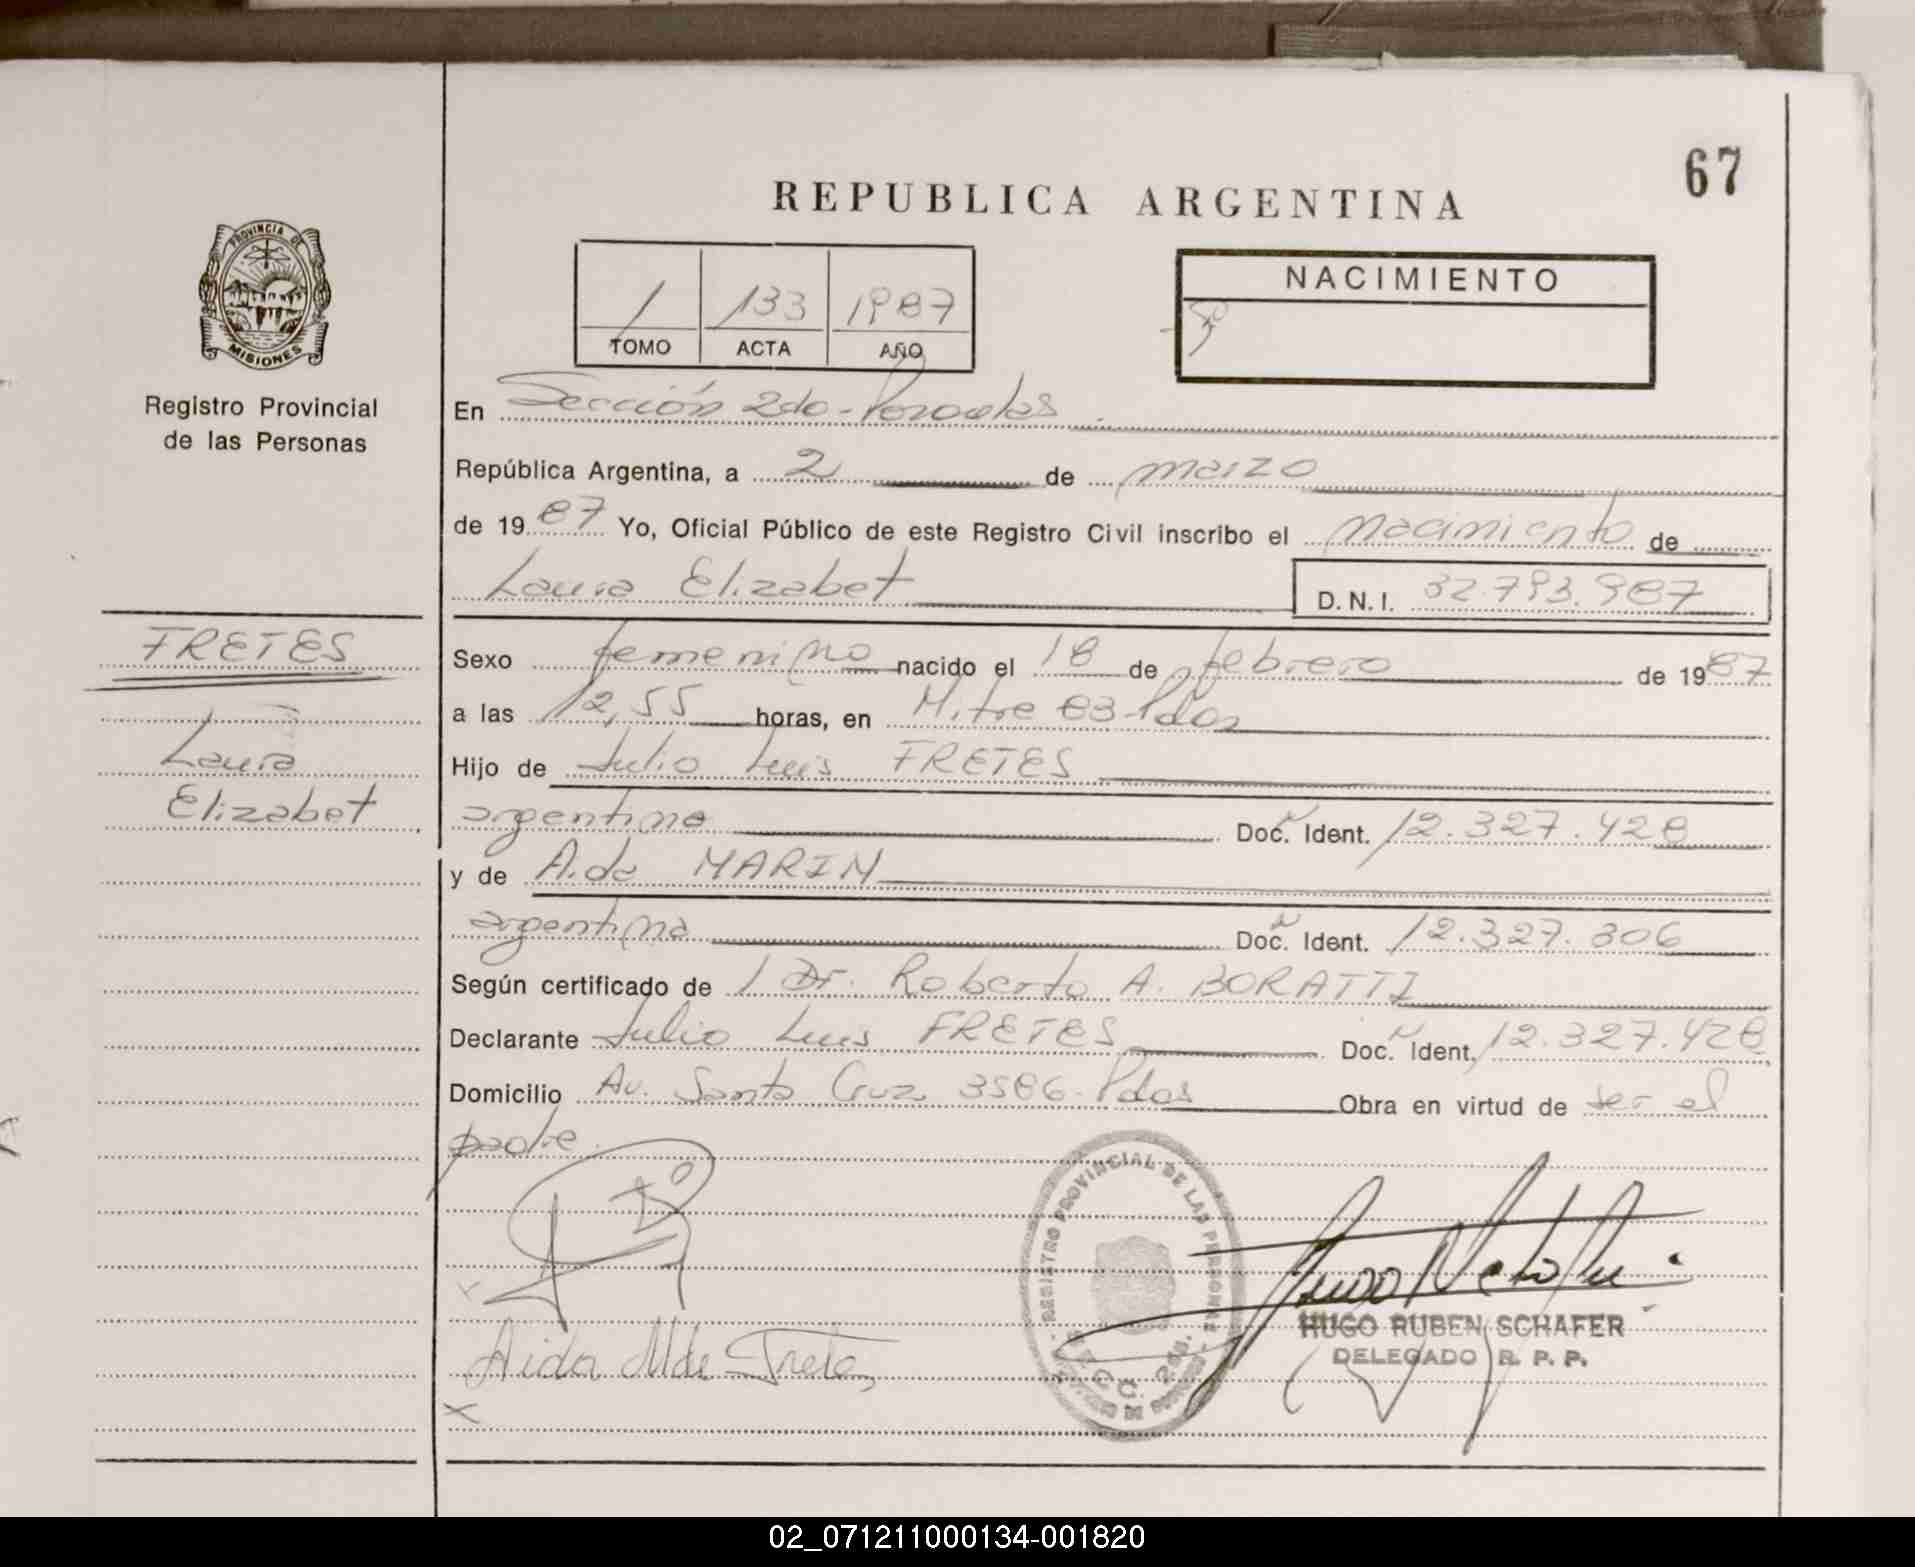 67
REPUBLICA ARGENTINA
PROVINCIA DE
MISIONES
Registro Provincial
de las Personas
1 133 1987
TOMO ACTA AÑO
NACIMIENTO
En Sección 2do - Posadas
República Argentina, a 2 de marzo
de 1987 Yo, Oficial Público de este Registro Civil inscribo el nacimiento de
Laura Elizabet D.N.I. 32.793.987
FRETES
Laura
Elizabet
Sexo femenino nacido el 18 de febrero de 1987
a las 12,55 horas, en Mitre 83-Pdas
Hijo de Julio Luis FRETES
argentino Doc. Ident. 12.327.428
y de Aida MARIN
argentina Doc. Ident. 12.327.306
Según certificado de Dr. Roberto A. BORATTI
Declarante Julio Luis FRETES Doc. Ident. 12.327.428
Domicilio Av. Santa Cruz 3586-Pdas Obra en virtud de ser el
padre.
REGISTRO PROVINCIAL DE LAS PERSONAS
Aida M de Frete
HUGO RUBEN SCHAFER
DELEGADO R. P. P.
02_071211000134-001820